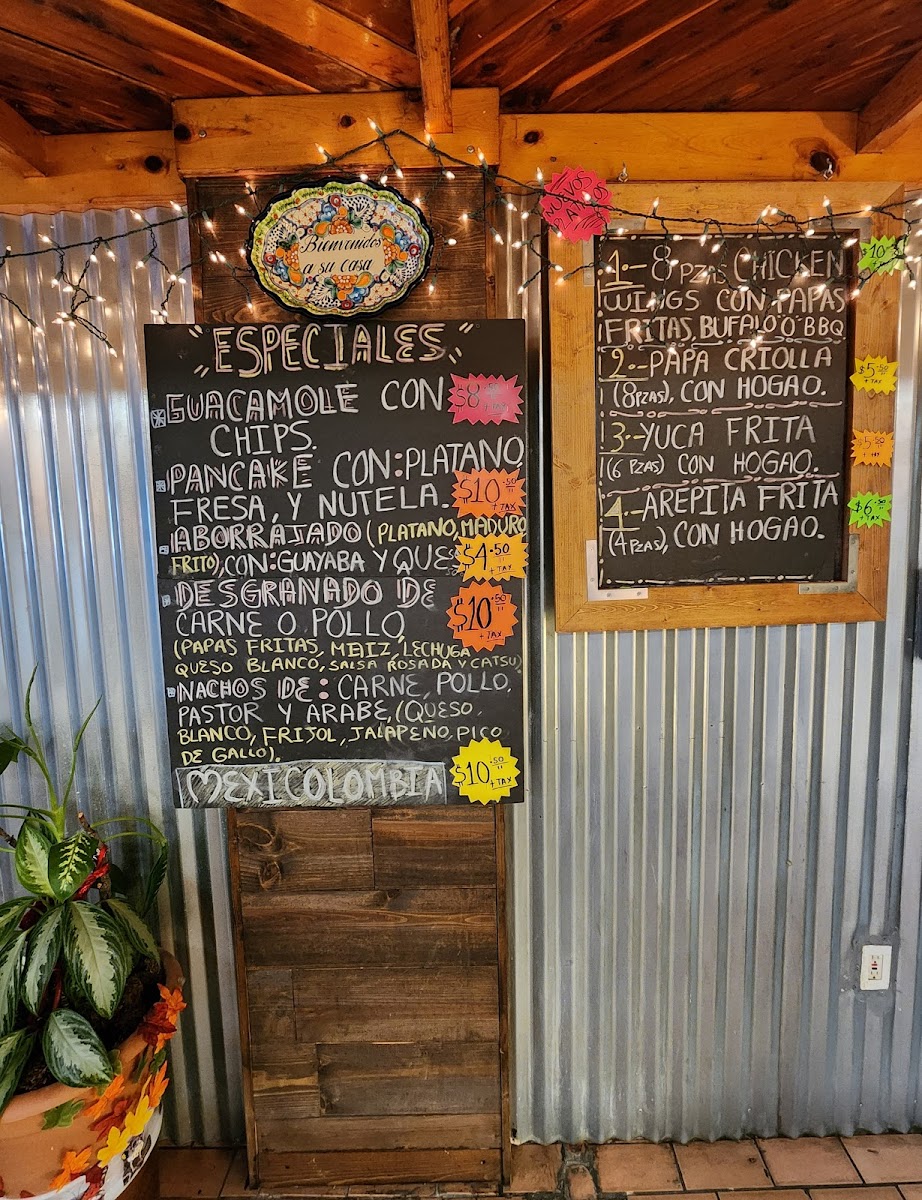 Bienvenidos
a su casa
"ESPECIALES"
GUACAMOLE CON
CHIPS.
$8.50
+ TAX
PANCAKE CON:PLATANO,
FRESA, Y NUTELA.
$10.50
+ TAX
ABORRAJADO (PLATANO, MADURO
FRITO), CON:GUAYABA Y QUE
$4.50
+ TAX
DESGRANADO DE
CARNE O POLLO
$10.50
+ TAX
(PAPAS FRITAS, MAIZ, LECHUGA
QUESO BLANCO, SALSA ROSADA Y CATSU)
NACHOS DE: CARNE, POLLO,
PASTOR Y ARABE, (QUESO,
BLANCO, FRIJOL, JALAPEÑO, PICO
DE GALLO).
$10.50
+ TAX
MEXICOLOMBIA
NUEVOS
1.- 8 PZAS CHICKEN
WINGS CON PAPAS
FRITAS, BUFALO "O" BBQ
$10
2.- PAPA CRIOLLA
(8PZAS), CON HOGAO.
$5.50
+ TAX
3.- YUCA FRITA
(6 PZAS) CON HOGAO.
$5.50
+ TAX
4.- AREPITA FRITA
(4PZAS), CON HOGAO.
$6.50
+ TAX